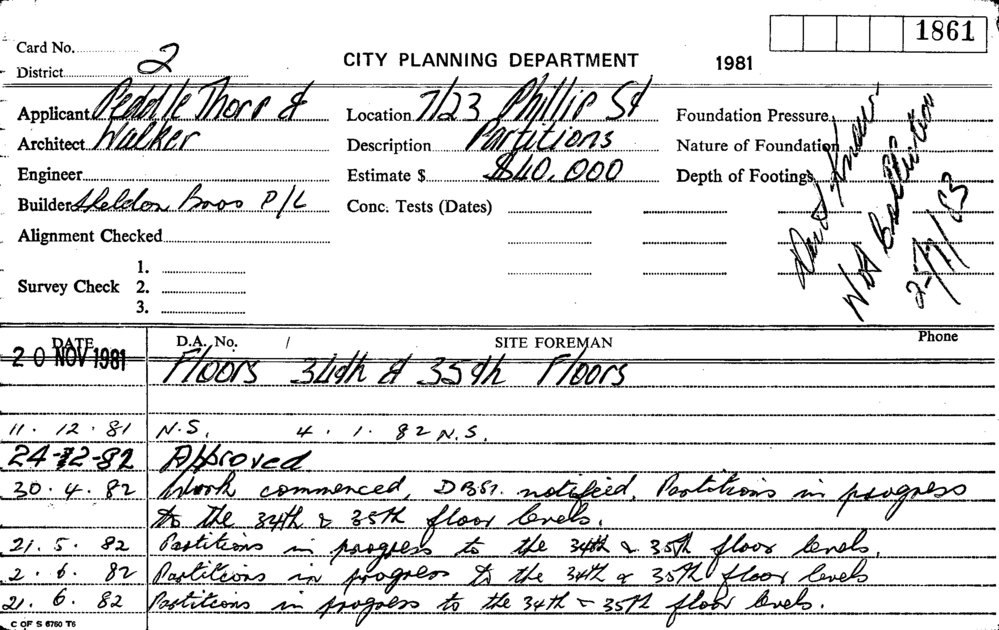 1861
Card No. 2
District
CITY PLANNING DEPARTMENT 1981
Applicant Peddle Thorp &
Architect Walker
Engineer
Builder Sheldon Bros P/L
Alignment Checked
Survey Check 1.
2.
3.
Location 7/23 Phillip St
Description Partitions
Estimate $ $40,000
Conc. Tests (Dates)
Foundation Pressure
Nature of Foundation
Depth of Footings
Not
DATE D.A. No. SITE FOREMAN Phone
20 NOV 1981 Floors 34th & 35th Floors
11. 12. 81 N.S. 4. 1. 82 N.S.
24-2-82 Approved
30. 4. 82 Work commenced, DBS1. notified. Partitions in progress
to the 34th & 35th floor levels.
21. 5. 82 Partitions in progress to the 34th & 35th floor levels.
2. 6. 82 Partitions in progress to the 34th & 35th floor levels
21. 6. 82 Partitions in progress to the 34th & 35th floor levels.
C OF S 6760 T6